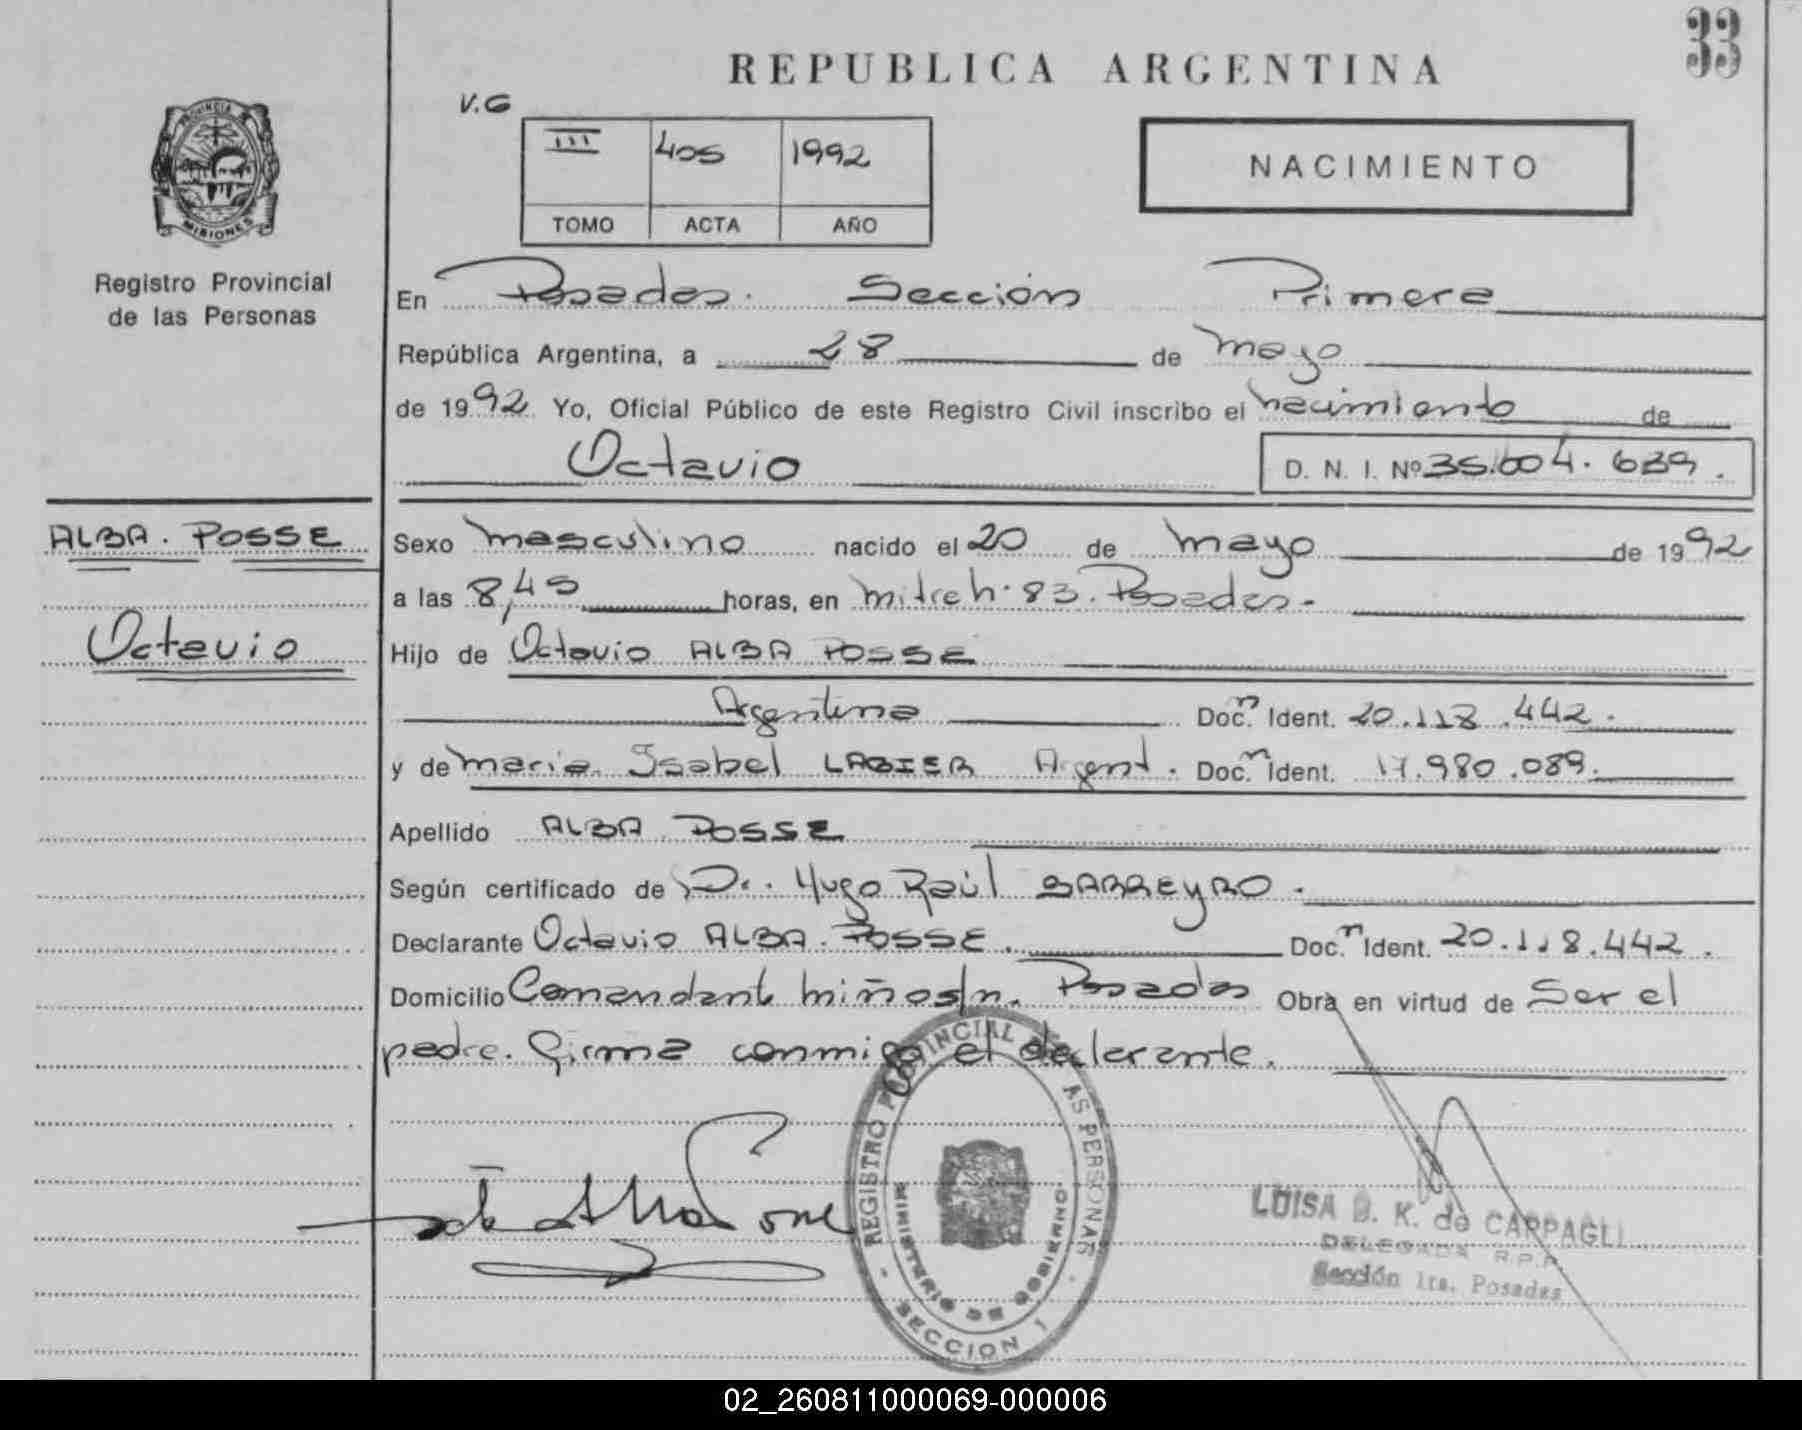 33
REPUBLICA ARGENTINA
V.G
III 405 1992
TOMO ACTA AÑO
NACIMIENTO
PROVINCIA DE
MISIONES
Registro Provincial
de las Personas
En Posadas. Sección Primera
República Argentina, a 28 de mayo
de 1992 Yo, Oficial Público de este Registro Civil inscribo el nacimiento de
Octavio D. N. I. Nº 35.004.639.
ALBA. POSSE
Octavio
Sexo masculino nacido el 20 de mayo de 1992
a las 8,45 horas, en mitre h. 83. Posadas.
Hijo de Octavio ALBA POSSE
Argentina Doc. n Ident. 20.118.442.
y de maria Isabel LABIER Argent. Doc. n Ident. 17.980.089.
Apellido ALBA POSSE
Según certificado de Dr. Hugo Raúl BARREYRO.
Declarante Octavio ALBA. POSSE. Doc. n Ident. 20.118.442.
Domicilio Comandante miño s/n. Posadas Obra en virtud de Ser el
padre. Firma conmigo el declarante.
REGISTRO PROVINCIAL DE LAS PERSONAS
MINISTERIO DE GOBIERNO
- SECCION 1 -
LUISA B. K. de CARPAGLI
DELEGADA R.P.P.
Sección 1ra. Posadas
02_260811000069-000006